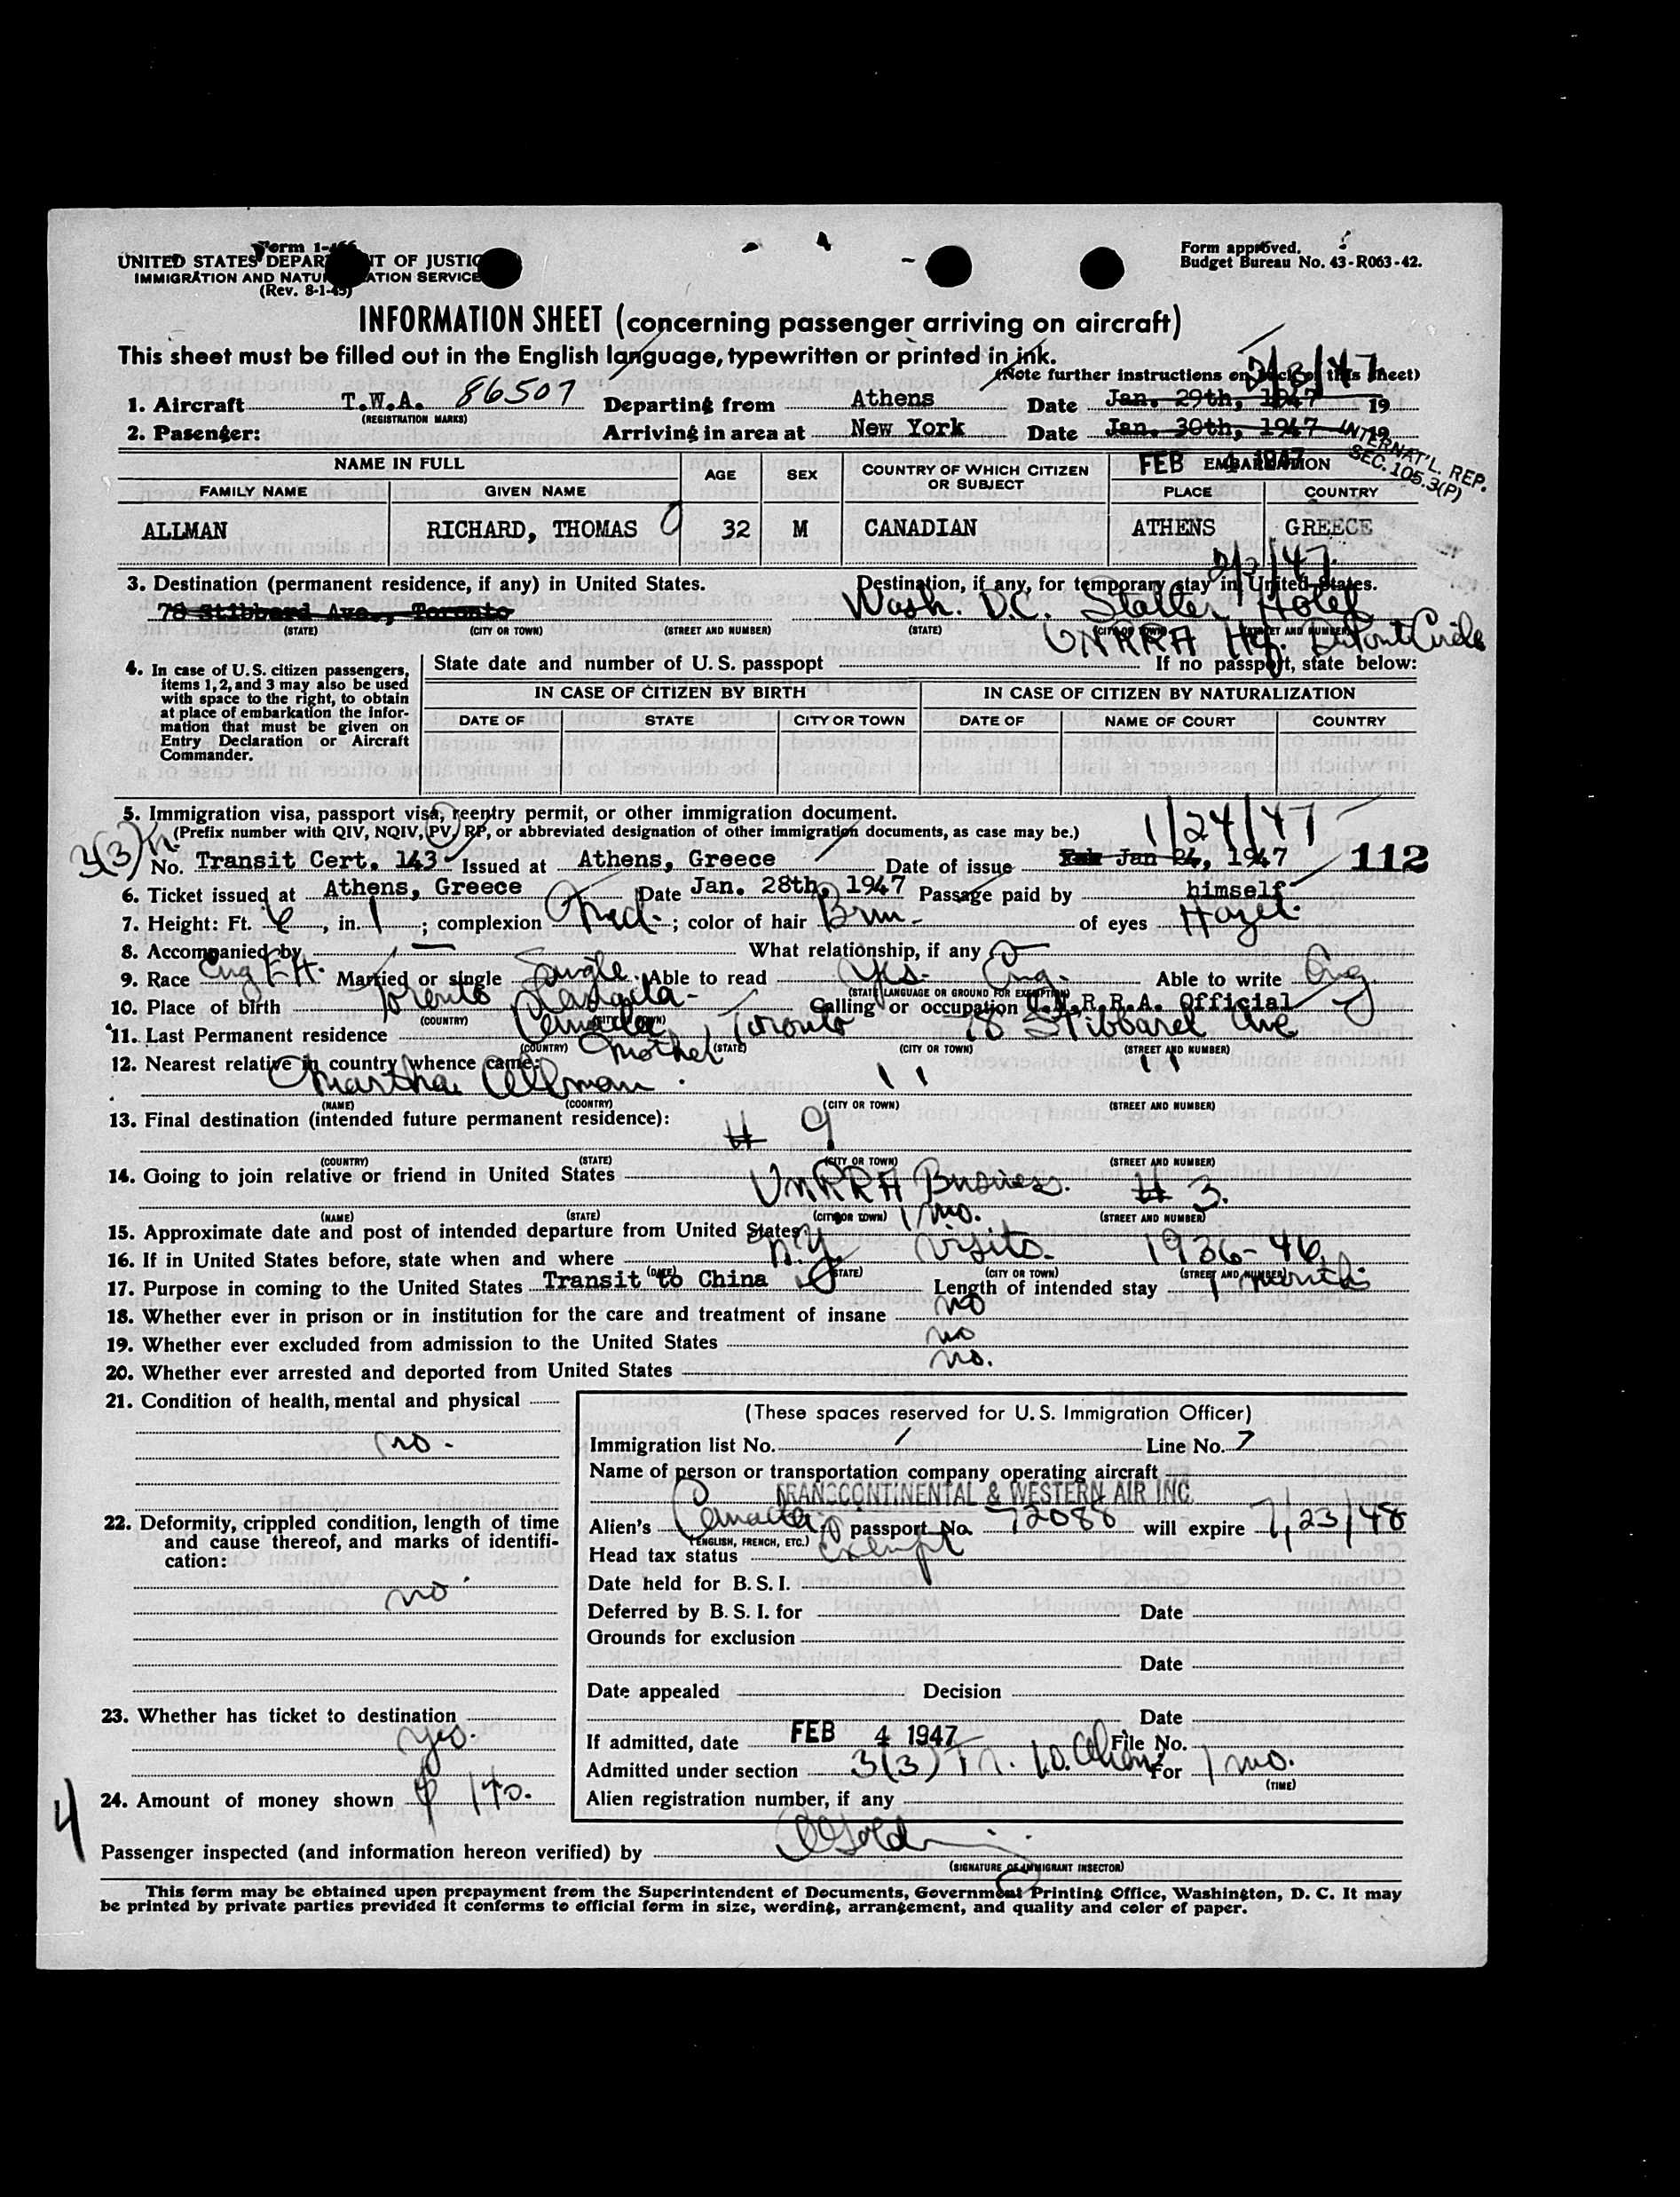 Form 1-466
UNITED STATES DEPAR T OF JUSTIC
IMMIGRATION AND NATU ATION SERVICE
(Rev. 8-1-45)
Form approved.
Budget Bureau No. 43-R063-42.
INFORMATION SHEET (concerning passenger arriving on aircraft)
This sheet must be filled out in the English language, typewritten or printed in ink.
(Note further instructions on back of this sheet)
2/3/47
1. Aircraft T.W.A. 86507 Departing from Athens Date Jan. 29th, 1947 19
(REGISTRATION MARKS)
2. Pasenger: Arriving in area at New York Date Jan. 30th, 1947 19
INTERNAT'L. REP.
SEC. 105.3(P)
FEB 4 1947
NAME IN FULL AGE SEX COUNTRY OF WHICH CITIZEN OR SUBJECT EMBARKATION
FAMILY NAME GIVEN NAME PLACE COUNTRY
ALLMAN RICHARD, THOMAS 32 M CANADIAN ATHENS GREECE
2/2/47
3. Destination (permanent residence, if any) in United States. Destination, if any, for temporary stay in United States.
78 Stibbard Ave., Toronto Wash. D.C. Statler Hotel
(STATE) (CITY OR TOWN) (STREET AND NUMBER) (STATE) (CITY OR TOWN) (STREET AND NUMBER)
UNRRA Hq. DuPont Circle
4. In case of U.S. citizen passengers, items 1, 2, and 3 may also be used with space to the right, to obtain at place of embarkation the information that must be given on Entry Declaration or Aircraft Commander.
State date and number of U.S. passpopt If no passport, state below:
IN CASE OF CITIZEN BY BIRTH IN CASE OF CITIZEN BY NATURALIZATION
DATE OF STATE CITY OR TOWN DATE OF NAME OF COURT COUNTRY
5. Immigration visa, passport visa, reentry permit, or other immigration document.
(Prefix number with QIV, NQIV, PV, RP, or abbreviated designation of other immigration documents, as case may be.)
1/24/47
3(3)
No. Transit Cert. 143 Issued at Athens, Greece Date of issue Jan 24, 1947 112
6. Ticket issued at Athens, Greece Date Jan. 28th, 1947 Passage paid by himself
7. Height: Ft. 6, in. 1; complexion Med.; color of hair Brn. of eyes Hazel.
8. Accompanied by — What relationship, if any
9. Race Eng EH. Married or single Single. Able to read Yes- Eng. Able to write Eng
(STATE LANGUAGE OR GROUND FOR EXEMPTION)
10. Place of birth Toronto Canada- Calling or occupation U.N.R.R.A. Official
(COUNTRY) (CITY OR TOWN)
11. Last Permanent residence Canada, Toronto 78 Stibbard Ave
(COUNTRY) (STATE) (CITY OR TOWN) (STREET AND NUMBER)
12. Nearest relative in country whence came: Mother
Martha Allman. " "
(NAME) (COONTRY) (CITY OR TOWN) (STREET AND NUMBER)
13. Final destination (intended future permanent residence):
# 9
(COUNTRY) (STATE) (CITY OR TOWN) (STREET AND NUMBER)
14. Going to join relative or friend in United States
UNRRA Business. # 3.
(NAME) (STATE) (CITY OR TOWN) (STREET AND NUMBER)
15. Approximate date and post of intended departure from United States 1 mo.
16. If in United States before, state when and where N.Y. Visits. 1936-46
(DATE) (STATE) (CITY OR TOWN) (STREET AND NUMBER)
17. Purpose in coming to the United States Transit to China Length of intended stay 1 month
18. Whether ever in prison or in institution for the care and treatment of insane no
19. Whether ever excluded from admission to the United States no
20. Whether ever arrested and deported from United States no.
21. Condition of health, mental and physical
no.
22. Deformity, crippled condition, length of time and cause thereof, and marks of identification:
no
23. Whether has ticket to destination
yes.
24. Amount of money shown $ 140.
4
(These spaces reserved for U.S. Immigration Officer)
Immigration list No. 1 Line No. 7
Name of person or transportation company operating aircraft
TRANSCONTINENTAL & WESTERN AIR INC.
Alien's Canada passport No. 72088 will expire 7/23/48
(ENGLISH, FRENCH, ETC.)
Head tax status Exempt
Date held for B.S.I.
Deferred by B.S.I. for Date
Grounds for exclusion
Date
Date appealed Decision
Date
If admitted, date FEB 4 1947 File No.
Admitted under section 3(3) For 1 mo.
(TIME)
Alien registration number, if any
Passenger inspected (and information hereon verified) by
(SIGNATURE OF IMMIGRANT INSECTOR)
This form may be obtained upon prepayment from the Superintendent of Documents, Government Printing Office, Washington, D. C. It may
be printed by private parties provided it conforms to official form in size, wording, arrangement, and quality and color of paper.